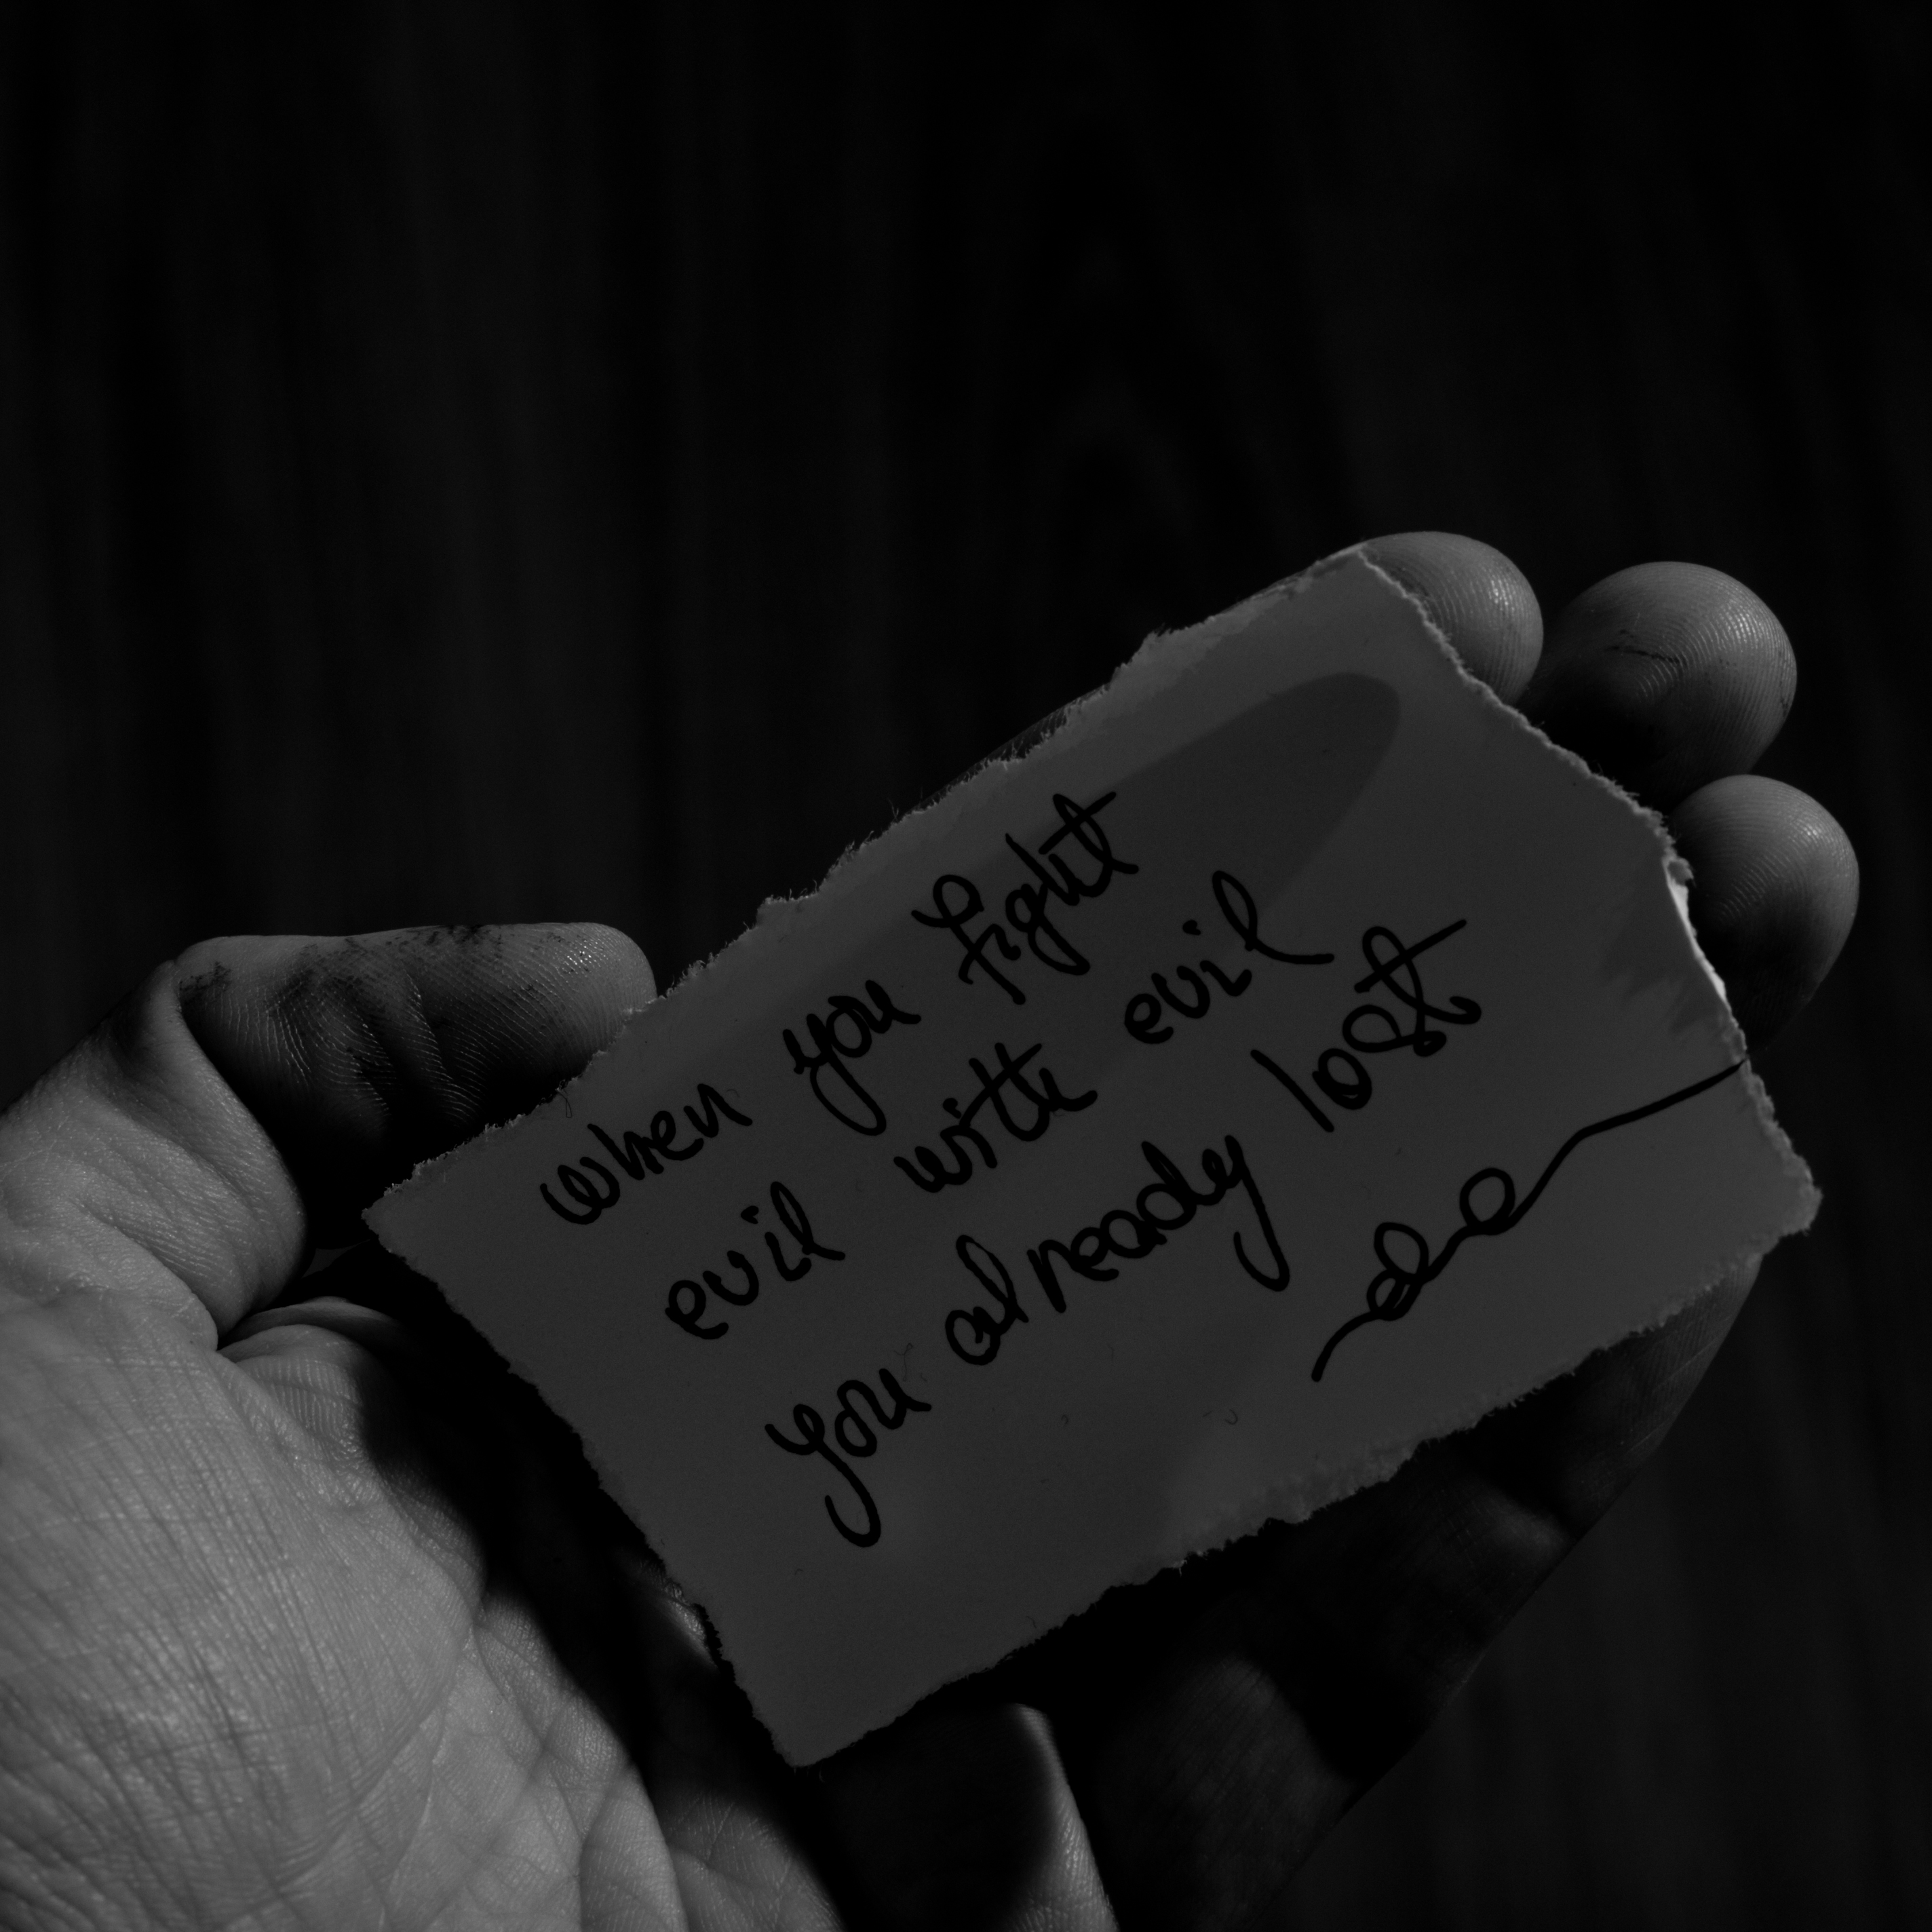 when you fight
evil with evil
you already lost